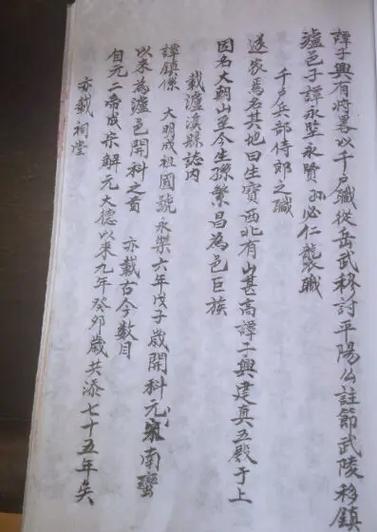 譚子興有將畧以千戶職從岳武移討平陽公註節武陵移鎮
瀘邑子譚永堅永賢孙必仁襲職
千戶兵部侍郎之職
遂家焉名其地曰生寶西北有山甚高譚子興建真五殿于上
因名大朝山至今生孫繁昌為邑巨族
載瀘溪縣誌内
譚鎮傑 大明成祖國號永樂六年戊子歲開科元末南蠻
以来為瀘邑開科之首 亦載古今数目
自元二帝成宗觧元大德以来九年癸夘歲共添七十五年矣
亦載祠堂